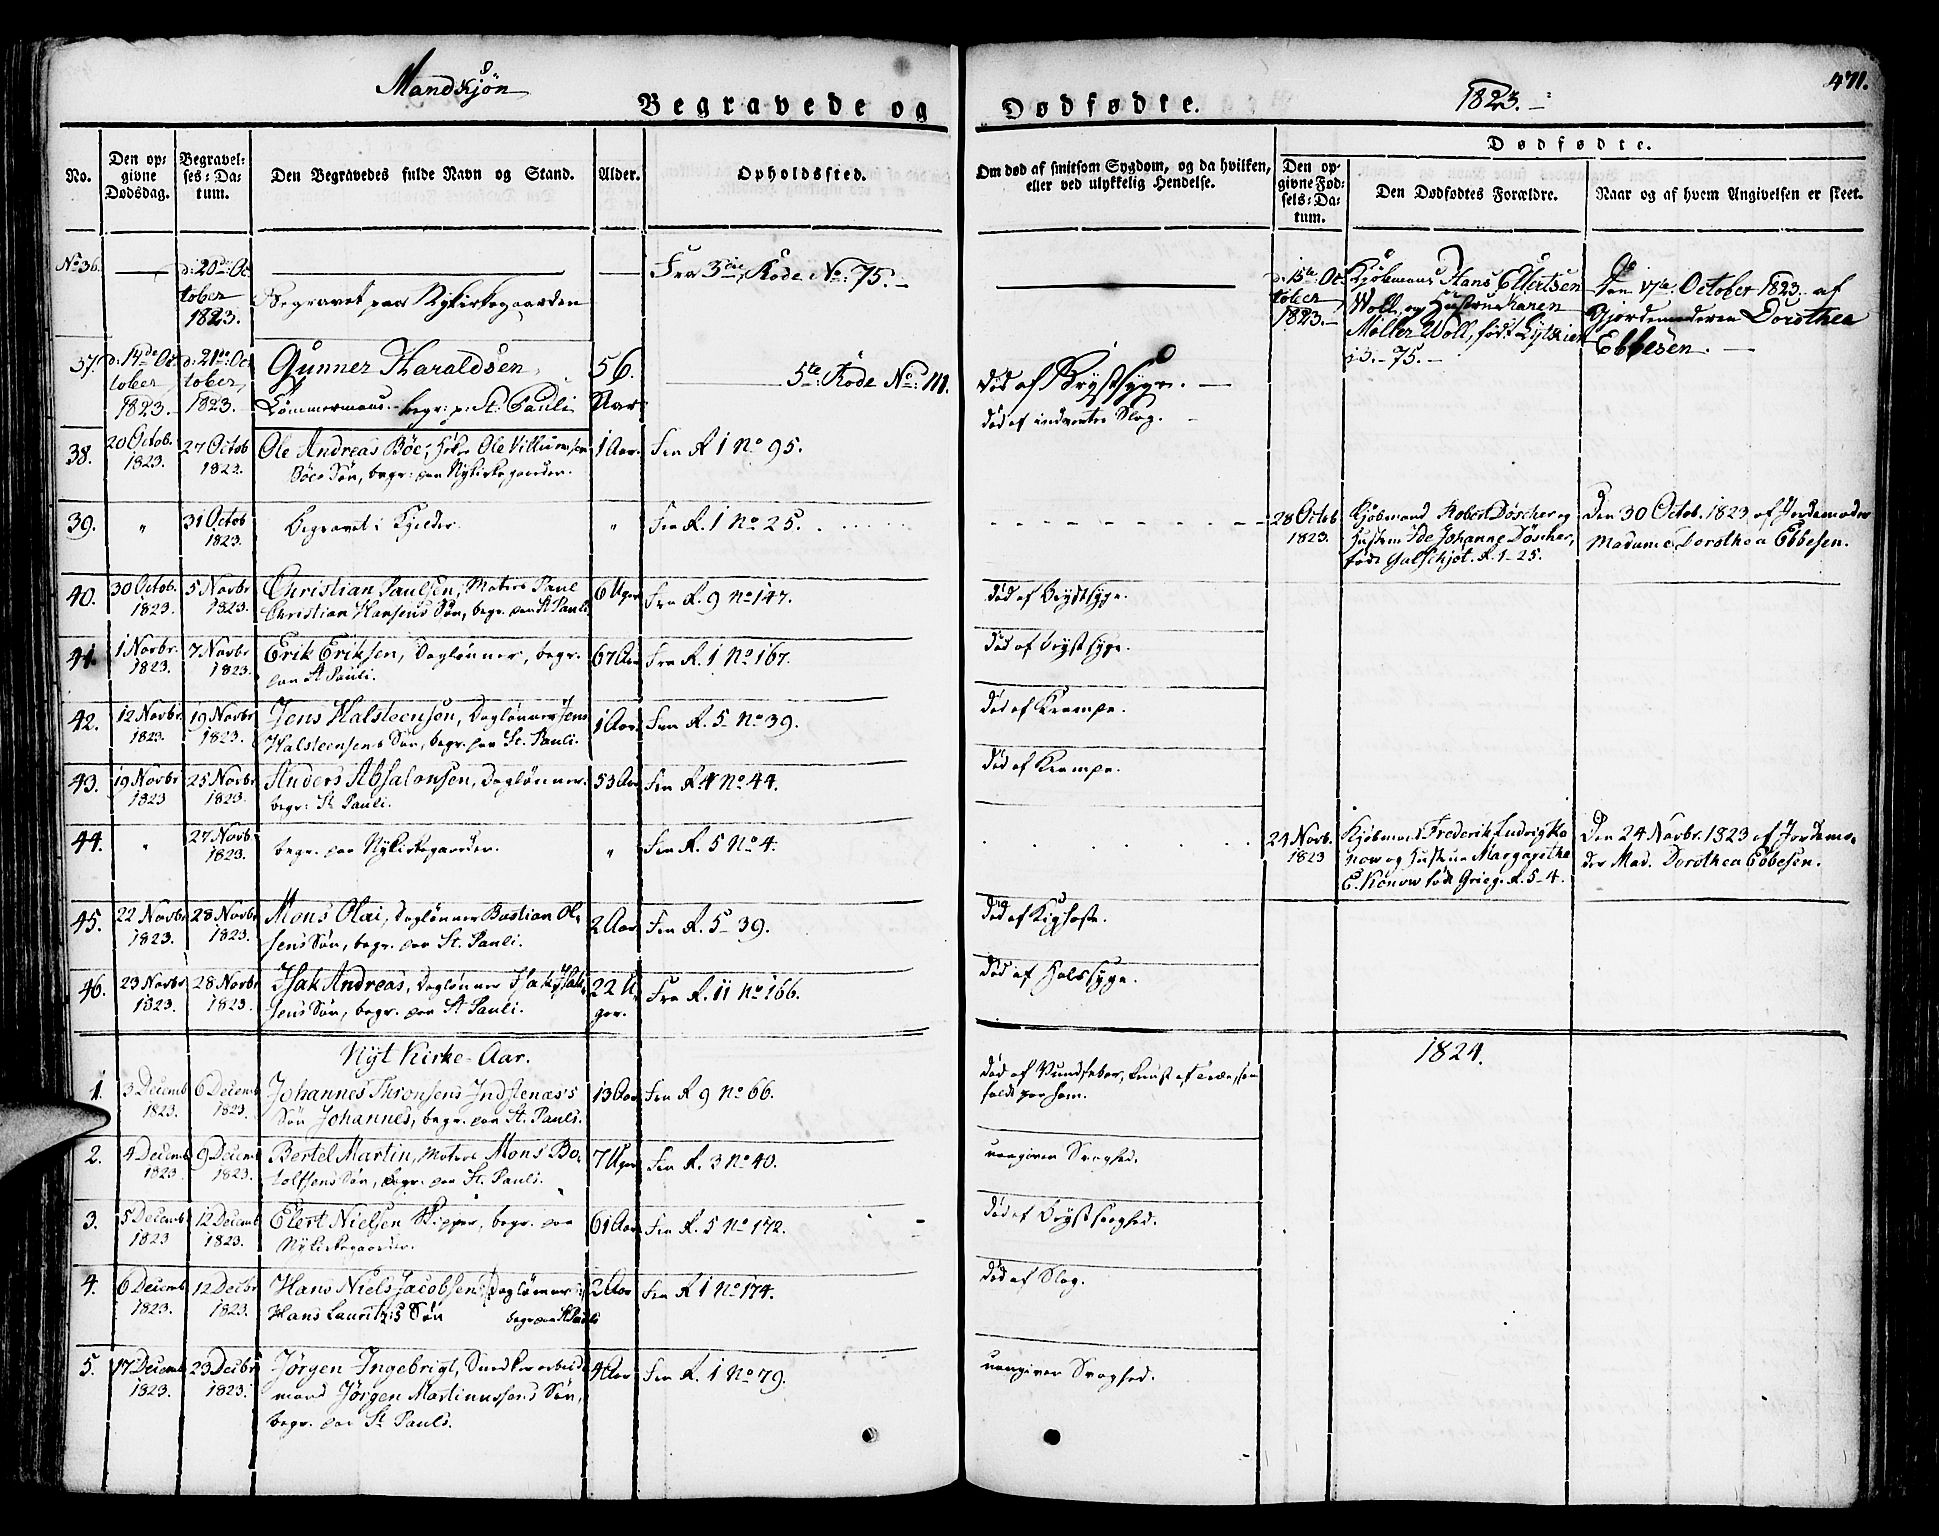 Mandkjøn
Begravede og Dødfødte.
1823.
471.
No.
Den opgivne Dødsdag.
Begravelses-Datum.
Den Begravedes fulde Navn og Stand.
Alder.
Opholdssted.
Om død af smitsom Sygdom, og da hvilken, eller ved ulykkelig Hendelse.
Dødfødte.
Den opgivne Fødsels-Datum.
Den Dødfødtes Forældre.
Naar og af hvem Angivelsen er skeet.
No 36.
d: 20de Oc
tober
1823.
Begravet paa Nykirkegaarden
Fra 3die Rode No: 75.
d: 15de Oc
tober
1823.
Kjøbmand Hans Ellertsen
Woll, og Hustrue Karen
Møller Woll, født
i 3.-75.
Den 17de October 1823. af
Gjordemoderen Dorothea
Ebbesen.
37.
d. 14de Oc
tober
1823.
d: 21de Oc
tober
1823.
Gunner Haraldsen,
Tømmermand. begr: p: St: Pauli
56
Aar
5te Rode No: 111.
død af Brystsyge.
38.
20 Octob.
1823.
27 Octob
1823.
Ole Andreas Böe,
Böes Søn, begr: paa Nykirkegaarden.
1 Aar.
Fra R 1 No 95.
død af indvortes Slag.
39.
"
31 Octob
1823.
Begravet i Kjelder.
"
Fra R. 1 No 25.
28 Octob
1823.
Kjøbmand Robert Døscher og
Hustru Ide Johanne Døscher,
født R. 1-25.
Den 30 Octob. 1823 af Jordemoder
Madame Dorothea Ebbesen.
40.
30 Octob.
1823.
5 Novbr
1823.
Christian Paulsen, Matros Paul
Christian Hansens Søn, begr. paa St Pauli
6 Uger
Fra R. 9 No 147.
død af Brystsyge.
41.
1 Novbr.
1823.
7 Novbr
1823.
Erik Eriksen, Daglønner, begr.
paa St Pauli.
67 Aar
Fra R. 1 No 167.
død af Brystsyge.
42.
12 Novbr.
1823.
19 Novbr
1823.
Jens Halsteensen, Daglønner Jens
Halsteensens Søn, begr. paa St. Pauli.
1 Aar.
Fra R. 5 No 39.
død af Krampe.
43.
19 Novbr
1823
25 Novbr
1823.
Anders Absalonsen, Daglønner.
begr: St Pauli.
53 Aar
Fra R 4 No 44.
død af Krampe.
44.
"
27 Novb
1823.
begr. paa Nykirkegaarden.
"
Fra R. 5 No 4.
24 Novb.
1823
Kjøbmand Frederik Ludvig Ko
now og Hustrue Margaretha
E. Konow født Grieg. R. 5-4.
Den 24 Novbr. 1823 af Jordemo-
der Mad. Dorothea Ebbesen.
45.
22 Novbr
1823.
28 Novbr
1823.
Mons Olai, Daglønner Bastian Ol-
sens Søn, begr. paa St. Pauli.
2 Aar
Fra R. 5- 39.
død af Kighoste.
46.
23 Novbr
1823.
28 Novbr
1823.
Isak Andreas, Daglønner Isak Isak-
sens Søn, begr. paa St Pauli.
22 U-
ger.
Fra R. 11 No 166.
død af Halssyge.
Nyt Kirke-Aar.
1824.
1.
3 Decemb
1823.
6 Decemb
1823.
Johannes Thronsens Indstenæs's
Søn Johannes, begr. paa St. Pauls.
13 Aar
Fra R 9 No 66.
død af Vundfeber,
faldt paa ham.
2.
4 Decemb
1823.
9 Decemb
1823.
Bertel Martin, Matros Mons Bo-
tolfsens Søn, begr. paa St. Pauls.
7 Uger
Fra R. 3 No 40.
uangiven Svaghed.
3.
5 Decemb
1823
12 Decemb
1823.
Elert Nielsen Skipper, begr. paa
Nykirkegaarden.
61 Aar
Fra R. 5 No 172.
død af Brystsvaghed.
4.
6 Decemb
1823.
12 Decbr
1823.
Hans Niels Jacobsen, Dagløner
Hans Lauritz's Søn begr paa St Pauli
2 Aar
Fra R 1 No 174.
død af Slag.
5.
17 Decemb
1823.
23 Decbr
1823.
Jørgen Ingebrigt,
mand Jørgen Martinussens Søn,
begr. paa St Pauls.
4 Aar
Fra R. 1 No 79.
uangiven Svaghed.